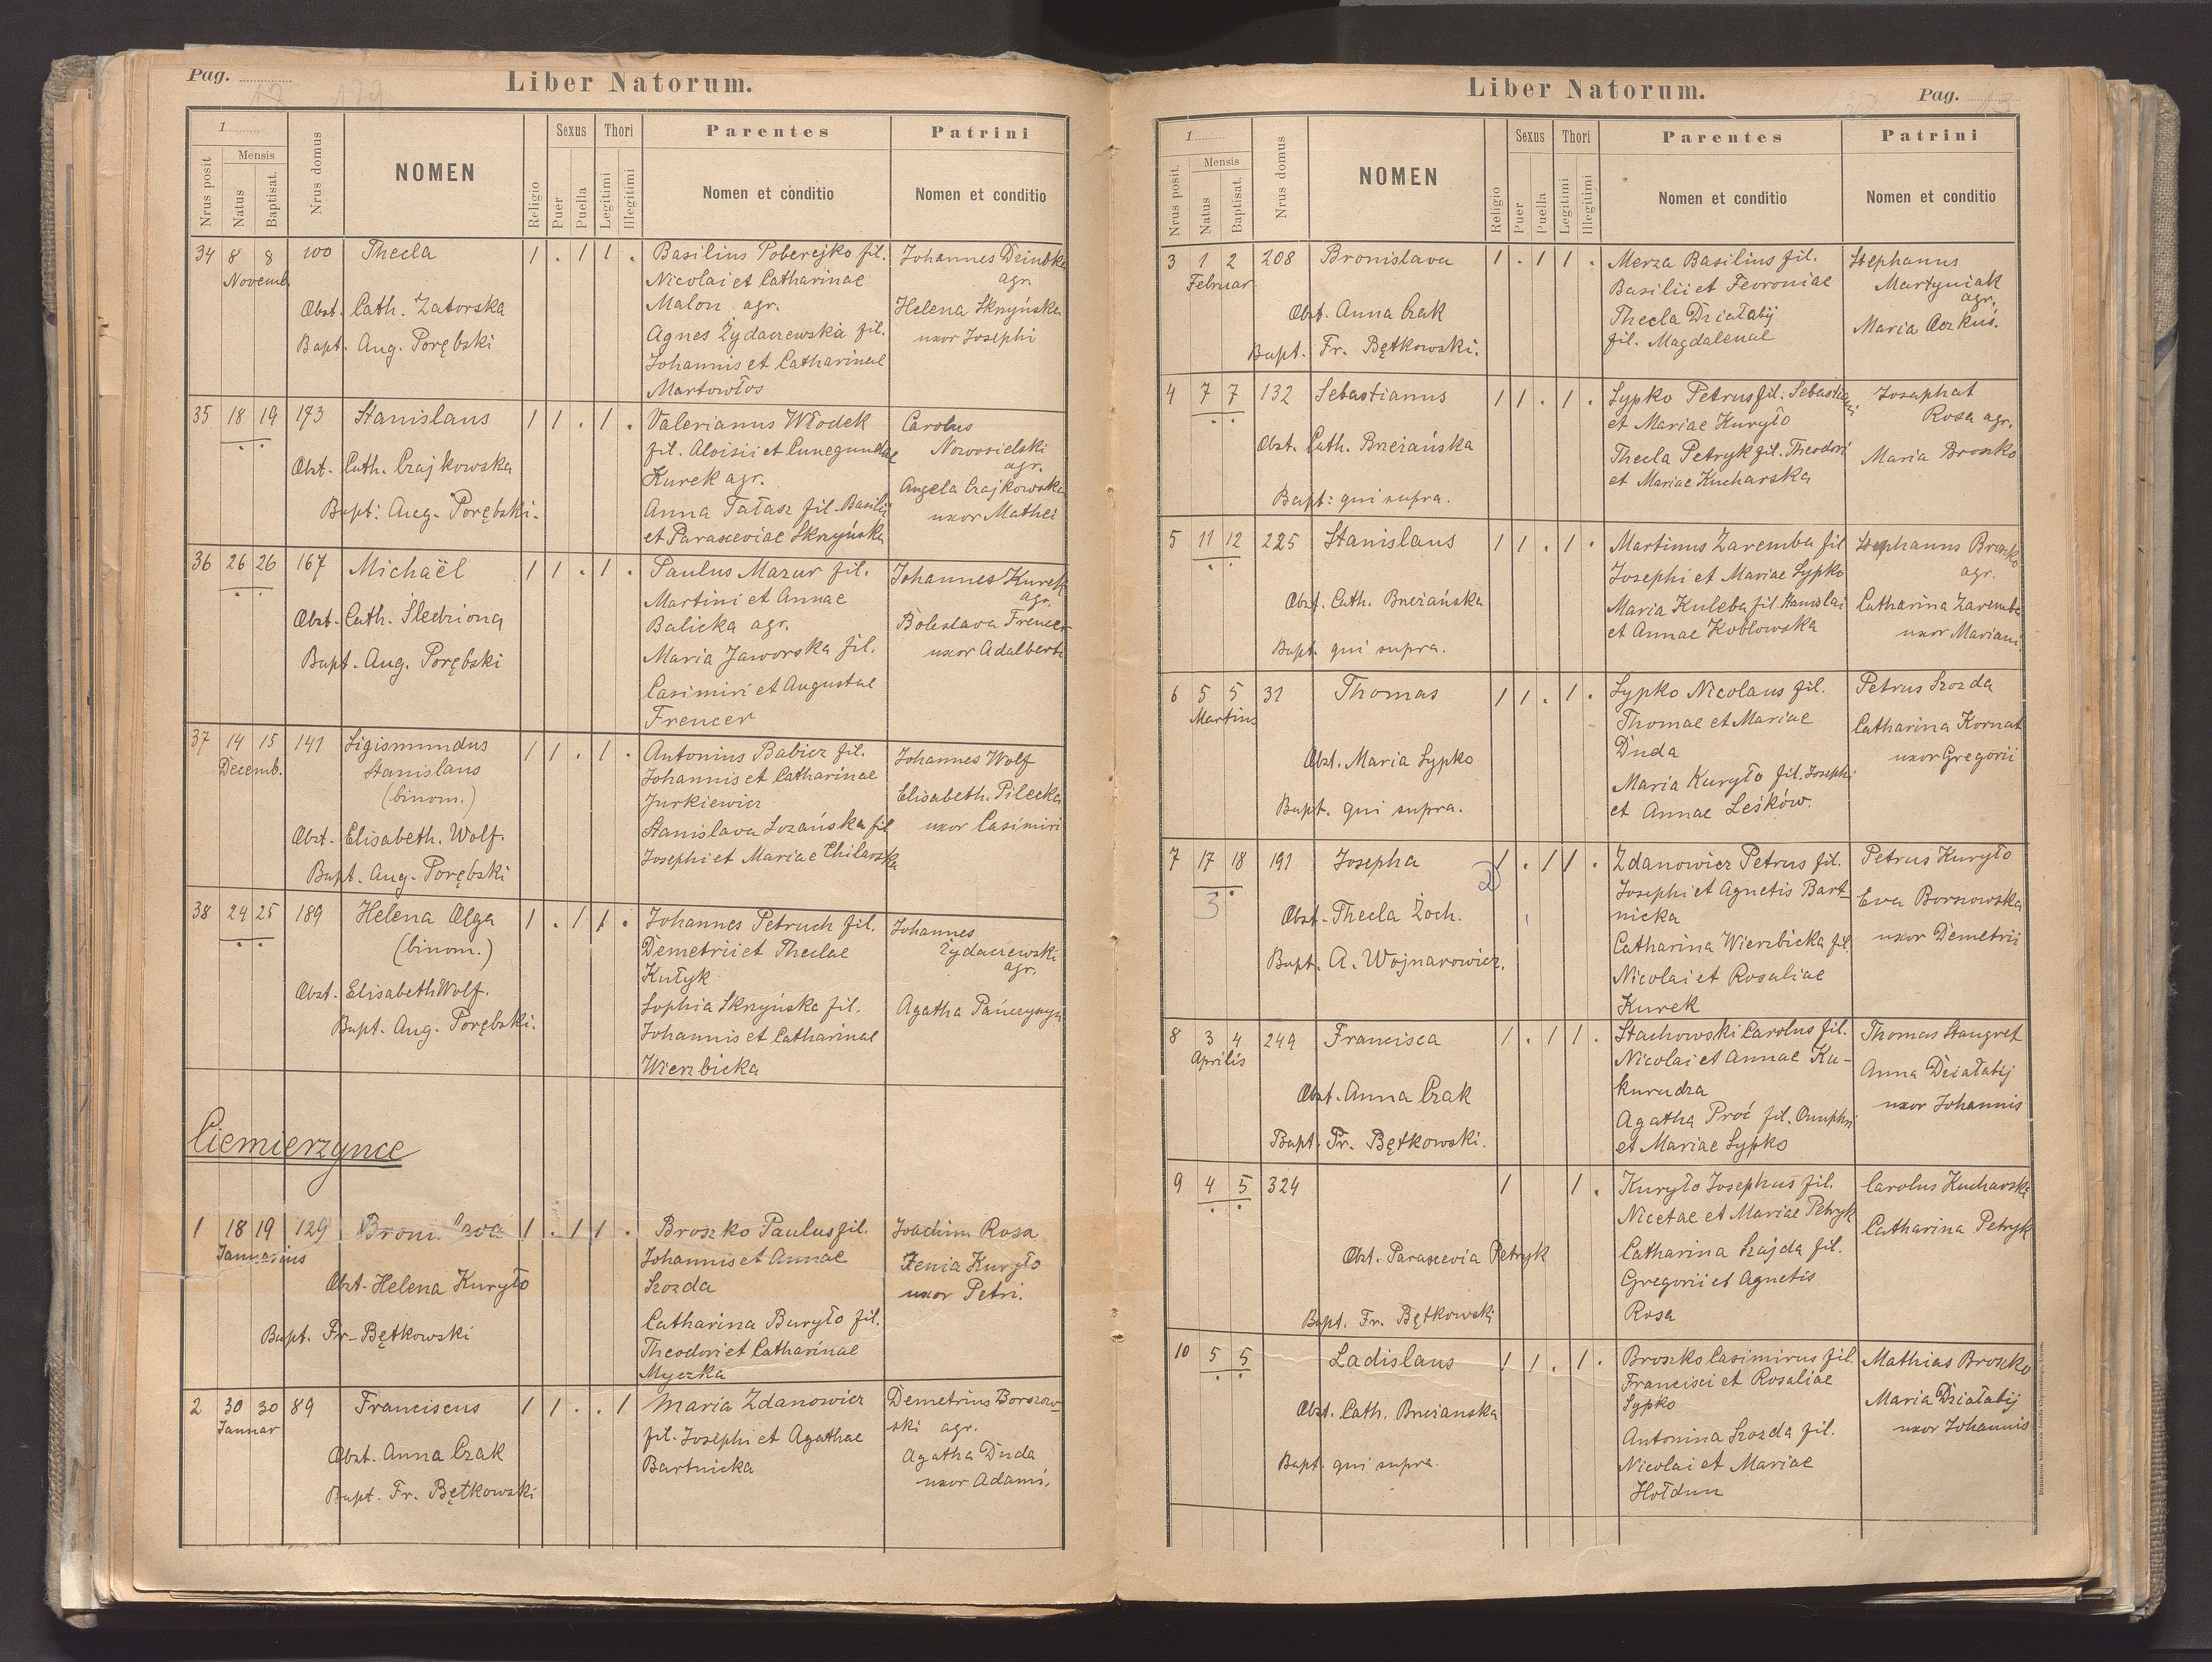 Pag.
Liber Natorum.
1
Nrus posit
Mensis
Natus
Baptisat.
Nrus domus
NOMEN
Religio
Sexus
Puer
Puella
Thori
Legitimi
Illegitimi
Parentes
Nomen et conditio
Patrini
Nomen et conditio
34 8 8 100 Thecla 1 . 1 1 .
Novemb.
Obst. Cath. Zatorska
Bapt. Aug. Porębski
Basilius Poberejko fil.
Nicolai et Catharinae
Malon agr.
Agnes Żydaczewska fil.
Johannis et Catharinae
Martowłos
Johannes Dziubka
agr.
Helena Skrzyńska
uxor Josephi
35 18 19 173 Stanislaus 1 1 . 1 .
Obst. Cath. Czajkowska
Bapt: Aug. Porębski.
Valerianus Włodek
fil. Aloisii et Cunegundae
Kurek agr.
Anna Tałasz fil. Basilii
et Parasceviae Skrzyńska
Carolus
Nowosielski
agr.
Angela Czajkowska
uxor Mathei
36 26 26 167 Michaël 1 1 . 1 .
Obst. Cath. Śledziona
Bapt. Aug. Porębski
Paulus Mazur fil.
Martini et Annae
Balicka agr.
Maria Jaworska fil.
Casimiri et Augustae
Frencer
Johannes Kurek
agr.
Boleslava Frencer
uxor Adalberti
37 14 15 141 Sigismundus 1 1 . 1 .
Decemb.
Stanislaus
(binom.)
Obst. Elisabeth. Wolf.
Bapt. Aug. Porębski
Antonius Babicz fil.
Johannis et Catharinae
Jurkiewicz
Stanislava Lozańska fil
Josephi et Mariae Chilarska
Johannes Wolf
Elisabeth. Pilecka
uxor Casimiri
38 24 25 189 Helena Olga 1 . 1 1 .
(binom.)
Obst. Elisabeth Wolf.
Bapt. Aug. Porębski.
Johannes Petruch fil.
Demetrii et Theclae
Kułyk
Sophia Skrzyńska fil.
Johannis et Catharinae
Wierzbicka
Johannes
Żydaczewski
agr.
Agatha
Ciemierzynce
1 18 19 129 1 . 1 1 .
Januarius
Obst. Helena Kuryło
Bapt. Fr. Bętkowski
Broszko Paulus fil.
Johannis et Annae
Szozda
Catharina Buryło fil.
Theodori et Catharinae
Myczka
Joachim Rosa
Xenia Kuryło
uxor Petri.
2 30 30 89 Franciscus 1 1 . . 1
Januar
Obst. Anna Czak
Bapt. Fr. Bętkowski
Maria Zdanowicz
fil. Josephi et Agathae
Bartnicka
Demetrius Borszow-
ski agr.
Agatha Duda
uxor Adami.
Liber Natorum.
Pag.
1
Nrus posit.
Mensis
Natus
Baptisat.
Nrus domus
NOMEN
Religio
Sexus
Puer
Puella
Thori
Legitimi
Illegitimi
Parentes
Nomen et conditio
Patrini
Nomen et conditio
3 1 2 208 Bronislava 1 . 1 1 .
Februar
Obst. Anna Czak
Bapt. Fr. Bętkowski.
Merza Basilius fil.
Basilii et Fevroniae
Thecla Działabij
fil. Magdalenae
Stephanus
Martyniak
agr.
Maria Aczkuś.
4 7 7 132 Sebastianus 1 1 . 1 .
Obst. Cath. Brzeżańska
Bapt: qui supra.
Sypko Petrus fil. Sebastiani
et Mariae Kuryło
Thecla Petryk fil. Theodori
et Mariae Kucharska
Josaphat
Rosa agr.
Maria Broszko
5 11 12 225 Stanislaus 1 1 . 1 .
Obst. Cath. Brzeżańska
Bapt. qui supra.
Martinus Zaremba fil
Josephi et Mariae Sypko
Maria Kuleba fil. Stanislai
et Annae Kobłowska
Stephanus Broszko
agr.
Catharina Zaremba
uxor Mariani
6 5 5 31 Thomas 1 1 . 1 .
Martius
Obst. Maria Sypko
Bapt. qui supra.
Sypko Nicolaus fil.
Thomae et Mariae
Duda
Maria Kuryło fil. Josephi
et Annae Leśków.
Petrus Szozda
Catharina Kornat
uxor Gregorii
7 17 18 191 Josepha 1 . 1 1 .
3
2
Obst. Thecla Żoch.
Bapt. A. Wojnarowicz.
Zdanowicz Petrus fil.
Josephi et Agnetis Bart-
nicka
Catharina Wierzbicka fil.
Nicolai et Rosaliae
Kurek
Petrus Kuryło
Eva Borszowska
uxor Demetrii
8 3 4 249 Francisca 1 . 1 1 .
Aprilis
Obst. Anna Czak
Bapt. Fr. Bętkowski.
Stachowski Carolus fil.
Nicolai et Annae Ku-
kurudza
Agatha Proć fil. Onuphri
et Mariae Sypko
Thomas Staugret
Anna Działabij
uxor Johannis
9 4 5 324 1 1 .
Obst. Parascevia Petryk
Bapt. Fr. Bętkowski
Kuryło Josephus fil.
Nicetae et Mariae Petryk
Catharina Szajda fil.
Gregorii et Agnetis
Rosa
Carolus Kucharski
Catharina Petryk
10 5 5 Ladislaus 1 1 . 1 .
Obst. Cath. Brzeżanska
Bapt. qui supra.
Broszko Casimirus fil.
Francisci et Rosaliae
Sypko
Antonina Szozda fil.
Nicolai et Mariae
Hołdun
Mathias Broszko
Maria Działabij
uxor Johannis